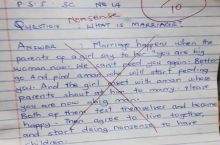 P.S.F. SC No 14
10
Nonsense
QUESTION WHAT IS MARRIAGE?
ANSWER Marriage happens when the
parents of a girl say to you are big
woman now. We can't feed you again. Better
go and find a man who will start feeding
you. And the girl meet with a man whose
parents shout at him to marry. Please
you are now a big man.
Both of them test themselves and become
happy. Then agree to live together,
and start doing nonsense to have
children.